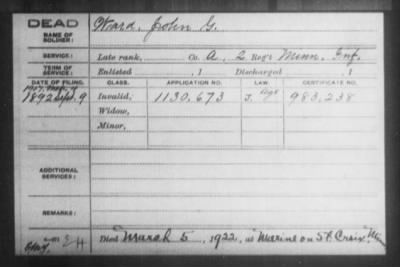 DEAD Ward, John G.
NAME OF SOLDIER:
SERVICE: Late rank, Co. A, 2 Reg't Minn. Inf.
TERM OF SERVICE: Enlisted , 1 Discharged , 1
DATE OF FILING. CLASS. APPLICATION NO. LAW. CERTIFICATE NO.
1892 Sept. 9 Invalid, 1130,673 J. Age 983,238
Widow,
Minor,
ADDITIONAL SERVICES:
REMARKS:
Died March 5, 1922, at Marine on St Croix, Minn